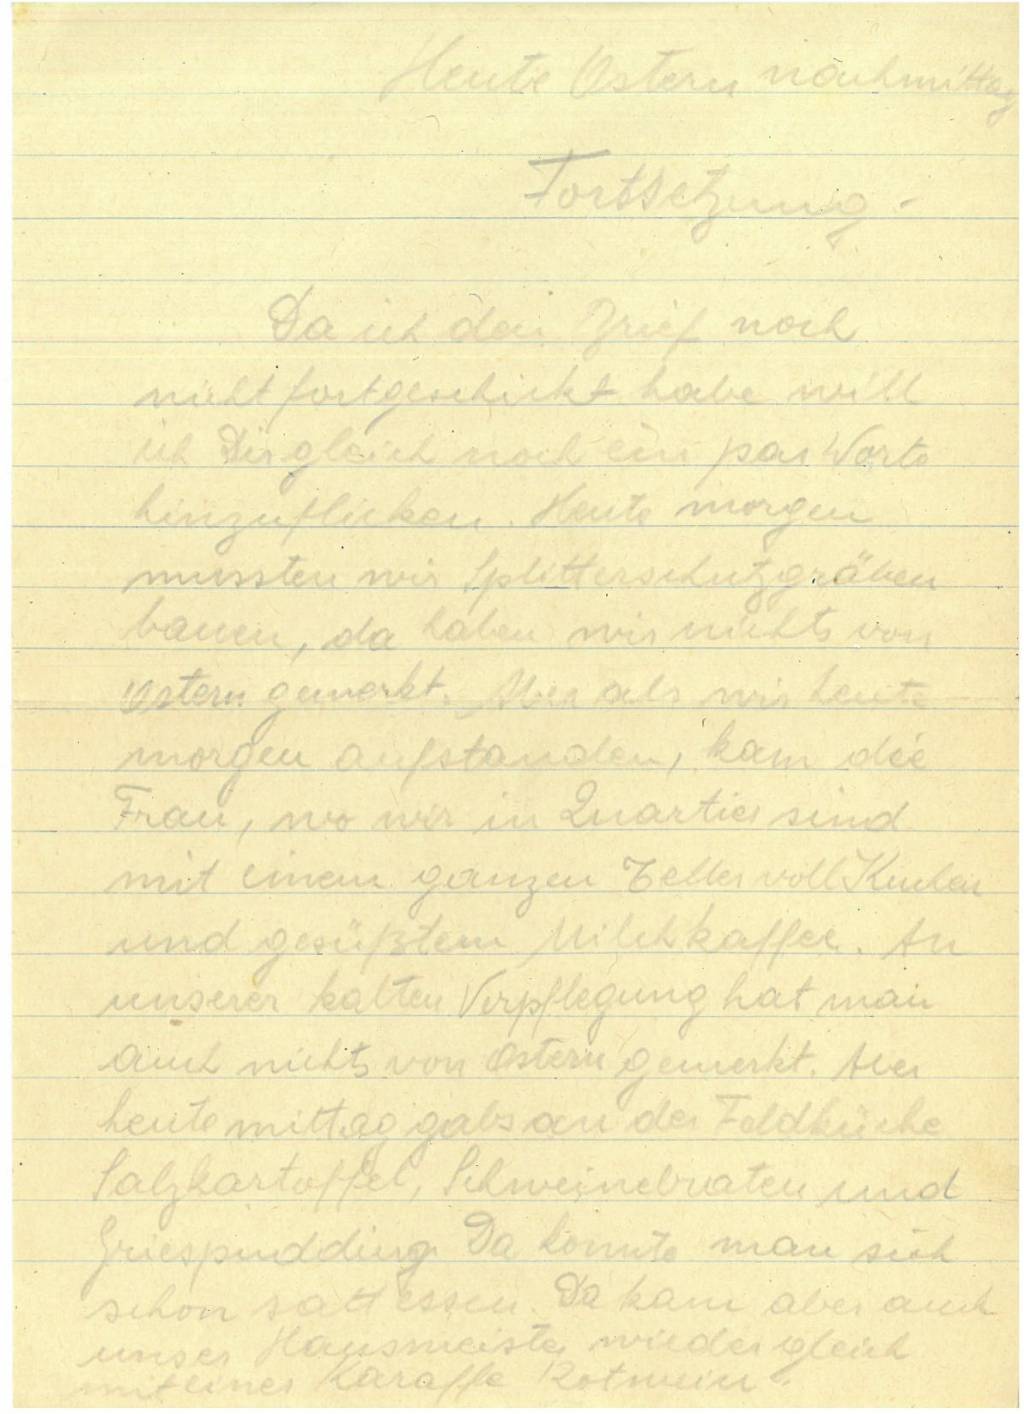 Heute Ostern nachmittag
Fortsetzung -
Da ich den Brief noch
nicht fortgeschickt habe will
ich Dir gleich noch ein par Worte
hinzuflicken. Heute morgen
mussten wir Splitterschutzgräben
bauen, da haben wir nichts von
Ostern gemerkt. Aber als wir heute
morgen aufstanden, kam die
Frau, wo wir in Quartier sind
mit einem ganzen Teller voll Kuchen
und gesüßtem Milchkaffee. An
unserer kalten Verpflegung hat man
auch nichts von Ostern gemerkt. Aber
heute mittag gabs an der Feldküche
Salzkartoffel, Schweinebraten und
Griespudding. Da konnte man sich
schon satt essen. Da kam aber auch
unser Hausmeister wieder gleich
mit einer Karaffe Rotwein.